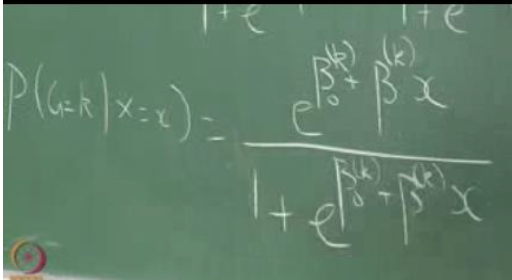 1+e 1+e
P(G=k|X=x) = e^{β_0^{(k)} + β^{(k)} x}
1 + e^{β_0^{(k)} + β^{(k)} x}